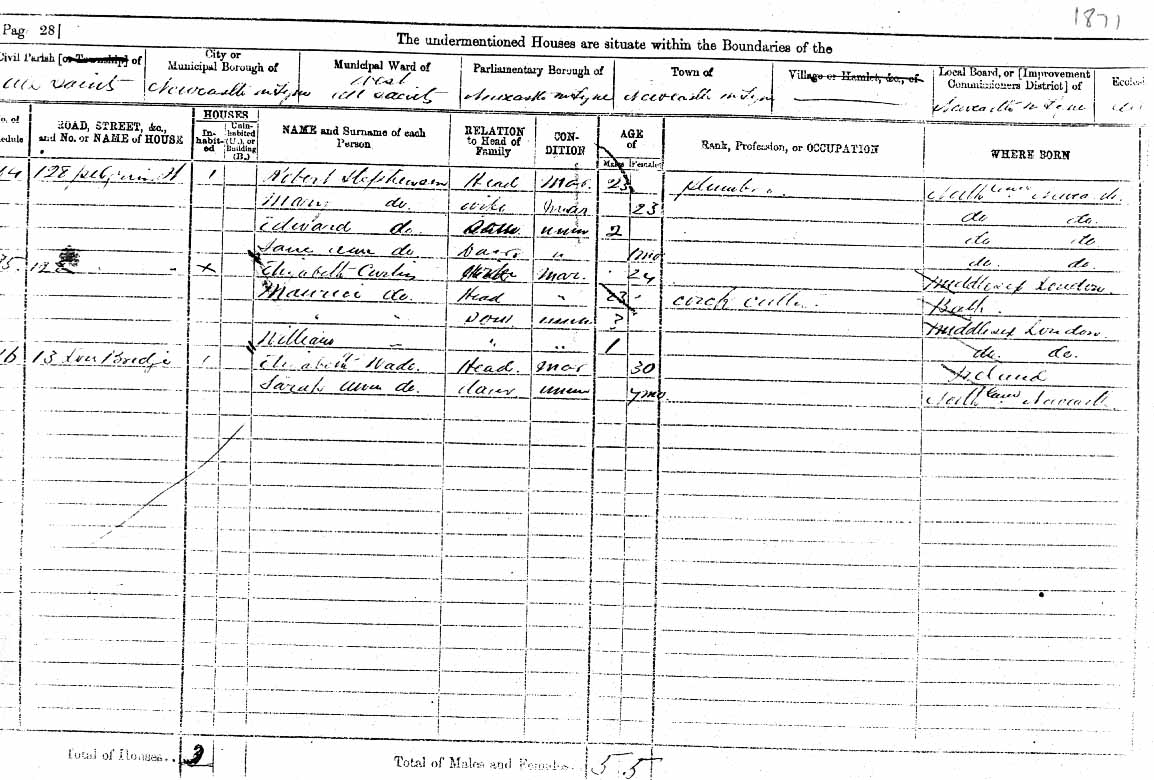 1871
Pag 28
The undermentioned Houses are situate within the Boundaries of the
Civil Parish [or Township] of
City or Municipal Borough of
Municipal Ward of
Parliamentary Borough of
Town of
Village or Hamlet, &c., of
Local Board, or [Improvement Commissioners District] of
Eccles
All Saints
Newcastle on Tyne
West All Saints
Newcastle on Tyne
Newcastle on Tyne
Newcastle on Tyne
o. of edule
ROAD, STREET, &c., and No. or NAME of HOUSE
HOUSES
In-habit-ed
Unin-habited (U.), or Building (B.)
NAME and Surname of each Person
RELATION to Head of Family
CON-DITION
AGE of
Males Females
Rank, Profession, or OCCUPATION
WHERE BORN
74 128 Pilgrim St 1 Robert Stephenson Head Mar. 23 Plumber North Newcastle
Mary do. wife mar 23 do do.
Edward do. unm 2 do do
Jane Ann do. Daur " mo do. do.
75. 128 x Elizabeth Mar. 24 Middlesex London
Maurice do. Head " 23 Cork Cutter Bath.
" " Son unm Middlesex London
William " " " 1 do. do.
76 13 Low Bridge 1 Elizabeth Wade. Head. mar 30 Ireland
Sarah Ann do. daur unm mo North Newcastle
Total of Houses.. 3
Total of Males and Females.. 5 5